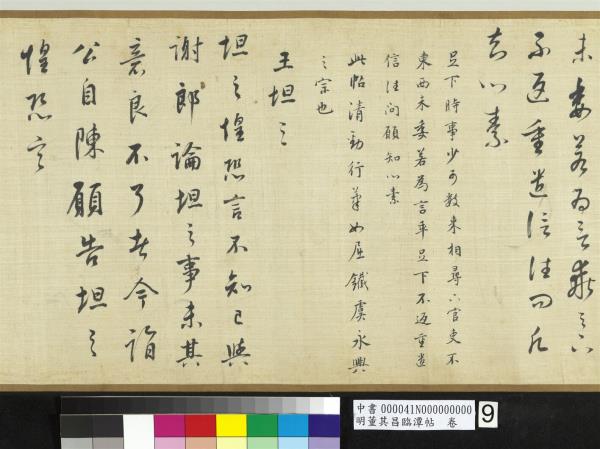 未委若為言歎足下
不返重遣信往問知
知心素
足下時事少可數來相尋下官吏不
東西未委若為言平足下不返重遣
信往問願知心素
此帖清勁行筆如屈鐵虞永興
之宗也
王坦之
坦之惶恐言不知已與
謝郎論坦之事未其
意良不了者今詣
公自陳願告坦之
惶恐言
中書 000041N000000000
明董其昌臨潭帖 卷
9